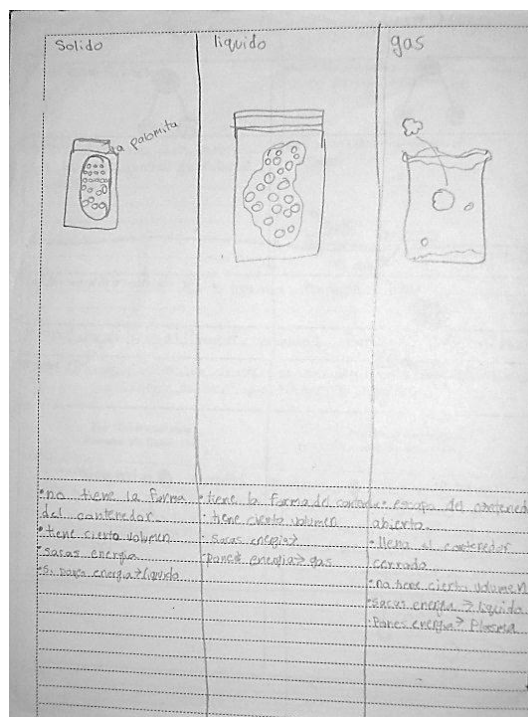 Solido
la palomita
•no tiene la forma
del contenedor
•tiene cierto volumen
•sacas energia
•Si pones energia→liquido
liquido
•tiene la forma del
•tiene cierto volumen
•sacas energia→
•pones energia→ gas
gas
•escapa del
abierto
•llena el contenedor
cerrado
•no tiene cierto volumen
•Sacas energia → liquido
•Pones energia→ Plasma